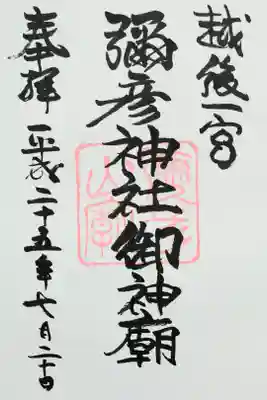 越後一宮
彌彦神社御神廟
奉拝 平成二十五年七月二十日